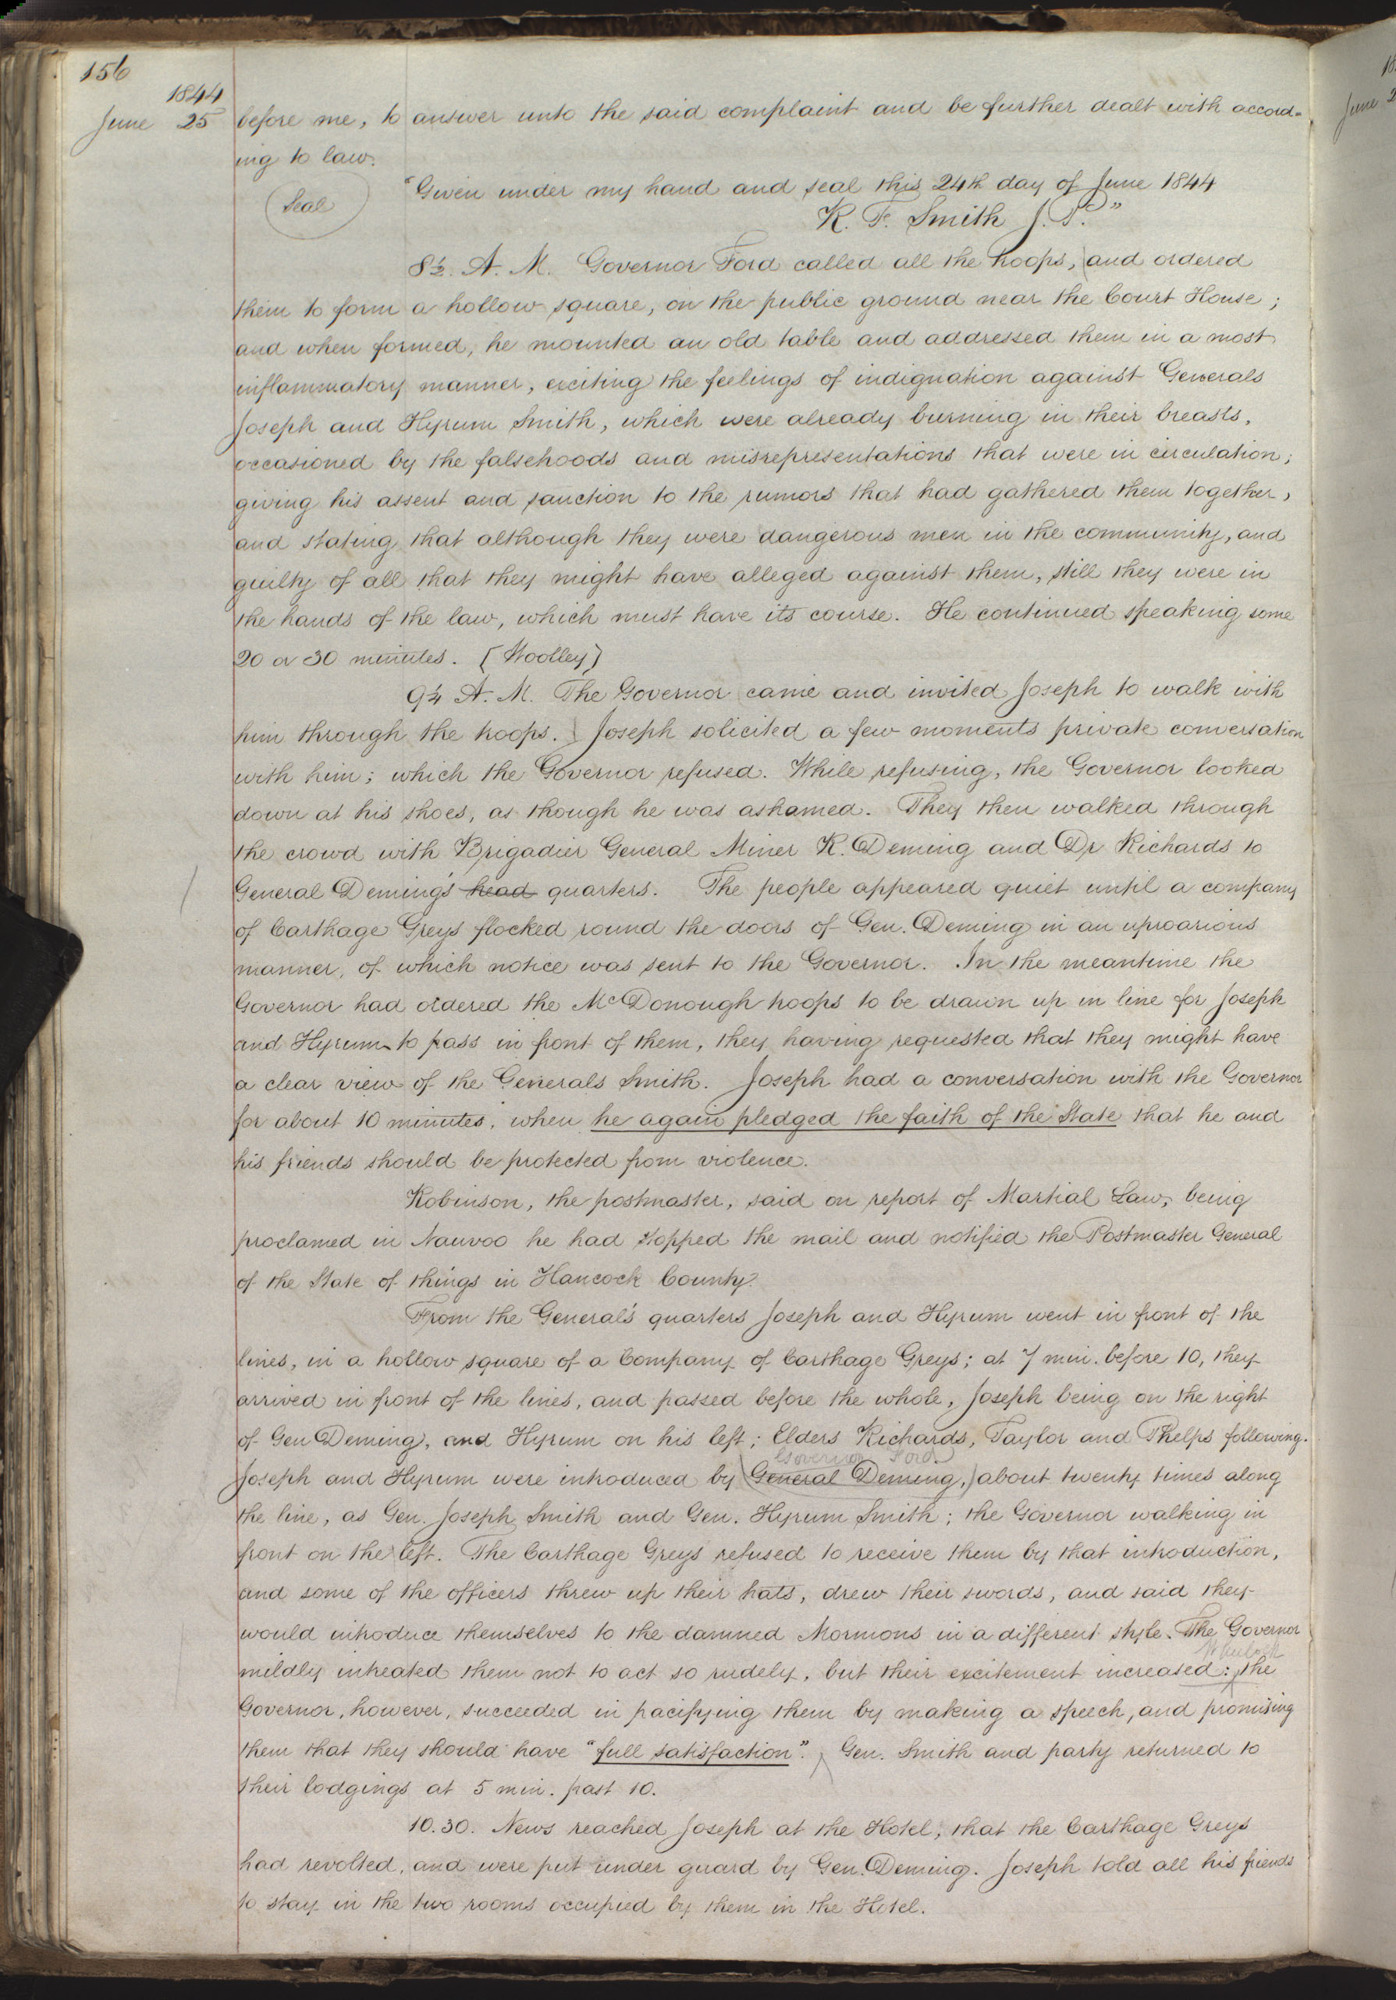 156
1844
June 25
before me, to answer unto the said complaint and be further dealt with accord-
ing to law.
Seal
"Given under my hand and seal this 24th day of June 1844
R. F. Smith J. P."
8½ A. M. Governor Ford called all the troops, and ordered
them to form a hollow square, on the public ground near the Court House;
and when formed, he mounted an old table and addressed them in a most
inflammatory manner, exciting the feelings of indignation against Generals
Joseph and Hyrum Smith, which were already burning in their breasts,
occasioned by the falsehoods and misrepresentations that were in circulation;
giving his assent and sanction to the rumors that had gathered them together,
and stating that although they were dangerous men in the community, and
guilty of all that they might have alleged against them, still they were in
the hands of the law, which must have its course. He continued speaking some
20 or 30 minutes. [Woolley]
9¼ A. M. The Governor came and invited Joseph to walk with
him through the troops. Joseph solicited a few moments private conversation
with him; which the Governor refused. While refusing, the Governor looked
down at his shoes, as though he was ashamed. They then walked through
the crowd with Brigadier General Miner R. Deming and Dr Richards to
General Deming's head quarters. The people appeared quiet until a company
of Carthage Greys flocked round the doors of Gen. Deming in an uproarious
manner, of which notice was sent to the Governor. In the meantime the
Governor had ordered the McDonough troops to be drawn up in line for Joseph
and Hyrum to pass in front of them, they having requested that they might have
a clear view of the Generals Smith. Joseph had a conversation with the Governor
for about 10 minutes, when he again pledged the faith of the State that he and
his friends should be protected from violence.
Robinson, the postmaster, said on report of Martial Law, being
proclamed in Nauvoo he had stopped the mail and notified the Postmaster General
of the State of things in Hancock County.
From the General's quarters Joseph and Hyrum went in front of the
lines, in a hollow square of a Company of Carthage Greys; at 7 min. before 10, they
arrived in front of the lines, and passed before the whole, Joseph being on the right
of Gen Deming, and Hyrum on his left; Elders Richards, Taylor and Phelps following.
Governor Ford
Joseph and Hyrum were introduced by General Deming, about twenty times along
the line, as Gen. Joseph Smith and Gen. Hyrum Smith; the Governor walking in
front on the left. The Carthage Greys refused to receive them by that introduction,
and some of the officers threw up their hats, drew their swords, and said they
would introduce themselves to the damned Mormons in a different style. The Governor
mildly intreated them not to act so rudely, but their excitement increased: the
Governor, however, succeeded in pacifying them by making a speech, and promising
them that they should have "full satisfaction". Gen. Smith and party returned to
their lodgings at 5 min. past 10.
10.30. News reached Joseph at the Hotel, that the Carthage Greys
had revolted, and were put under guard by Gen. Deming. Joseph told all his friends
to stay in the two rooms occupied by them in the Hotel.
June 2